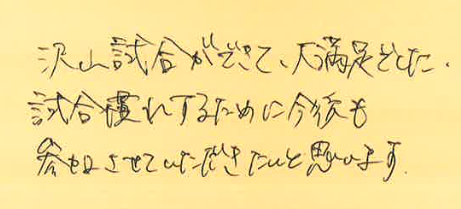 沢山試合ができて、大満足でした.
試合慣れするために今後も
参加させていただきたいと思います.